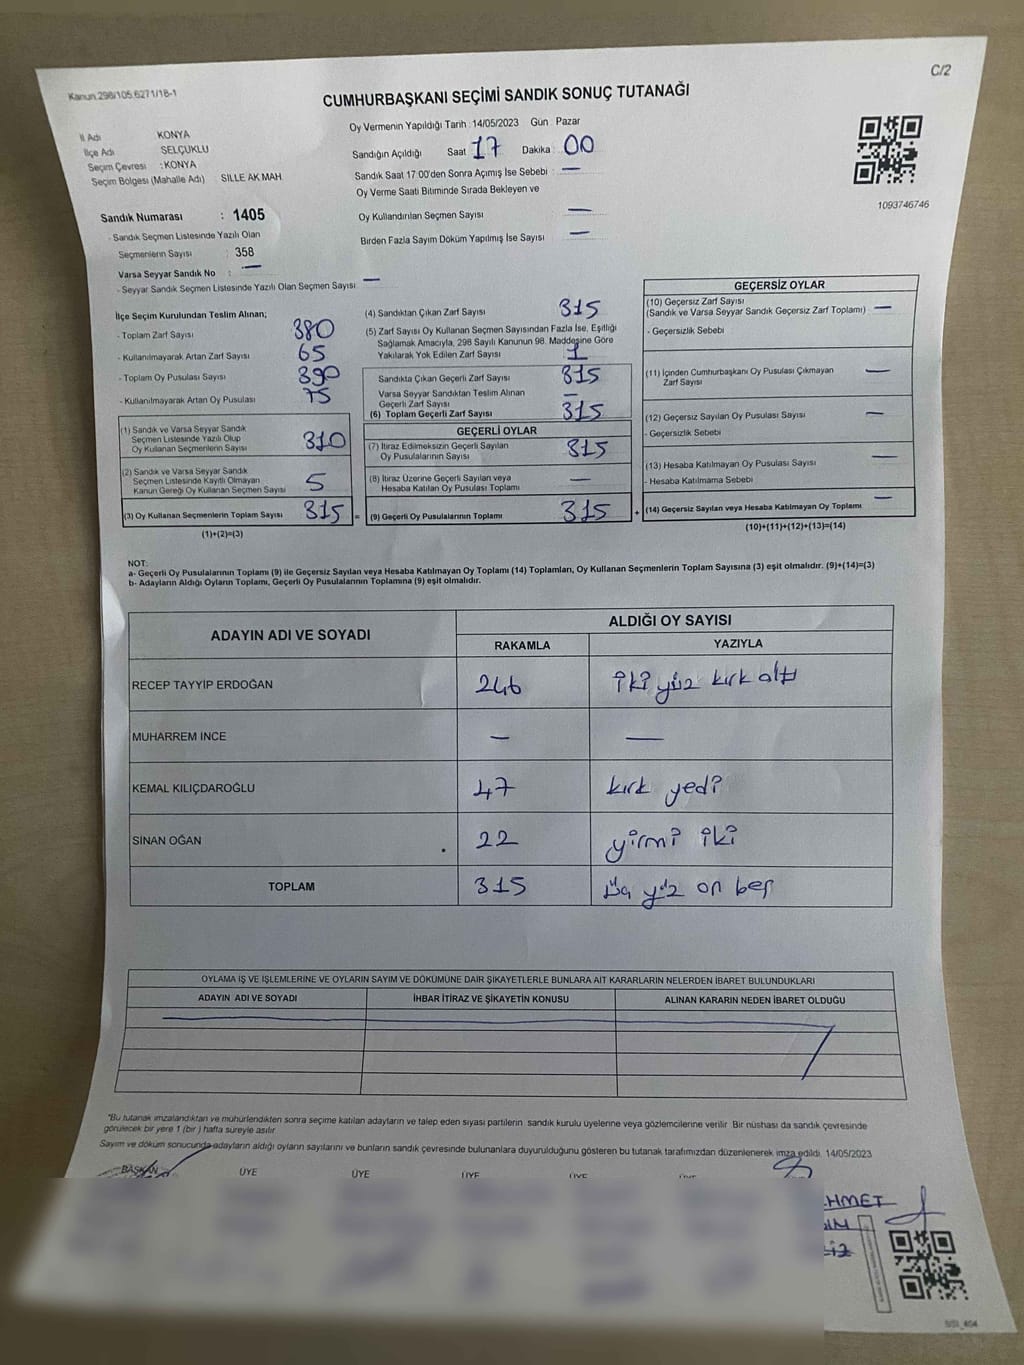 Kanun.298/105.6271/18-1
C/2
CUMHURBAŞKANI SEÇİMİ SANDIK SONUÇ TUTANAĞI
İl Adı KONYA
İlçe Adı SELÇUKLU
Seçim Çevresi : KONYA
Seçim Bölgesi (Mahalle Adı) SILLE AK MAH
Sandık Numarası : 1405
- Sandık Seçmen Listesinde Yazılı Olan
Seçmenlerin Sayısı : 358
Varsa Seyyar Sandık No : —
- Seyyar Sandık Seçmen Listesinde Yazılı Olan Seçmen Sayısı —
Oy Vermenin Yapıldığı Tarih : 14/05/2023 Gün Pazar
Sandığın Açıldığı Saat 17 Dakika : 00
Sandık Saat 17:00'den Sonra Açımış İse Sebebi : —
Oy Verme Saati Bitiminde Sırada Bekleyen ve
Oy Kullandırılan Seçmen Sayısı —
Birden Fazla Sayım Döküm Yapılmış İse Sayısı —
1093746746
İlçe Seçim Kurulundan Teslim Alınan;
- Toplam Zarf Sayısı 380
- Kullanılmayarak Artan Zarf Sayısı 65
- Toplam Oy Pusulası Sayısı 390
- Kullanılmayarak Artan Oy Pusulası 75
(1) Sandık ve Varsa Seyyar Sandık
Seçmen Listesinde Yazılı Olup
Oy Kullanan Seçmenlerin Sayısı 310
(2) Sandık ve Varsa Seyyar Sandık
Seçmen Listesinde Kayıtlı Olmayan
Kanun Gereği Oy Kullanan Seçmen Sayısı 5
(3) Oy Kullanan Seçmenlerin Toplam Sayısı 315 =
(1)+(2)=(3)
(4) Sandıktan Çıkan Zarf Sayısı 315
(5) Zarf Sayısı Oy Kullanan Seçmen Sayısından Fazla İse, Eşitliği
Sağlamak Amacıyla, 298 Sayılı Kanunun 98. Maddesine Göre
Yakılarak Yok Edilen Zarf Sayısı 1
Sandıkta Çıkan Geçerli Zarf Sayısı 315
Varsa Seyyar Sandıktan Teslim Alınan
Geçerli Zarf Sayısı —
(6) Toplam Geçerli Zarf Sayısı 315
GEÇERLİ OYLAR
(7) İtiraz Edilmeksizin Geçerli Sayılan
Oy Pusulalarının Sayısı 315
(8) İtiraz Üzerine Geçerli Sayılan veya
Hesaba Katılan Oy Pusulası Toplamı —
(9) Geçerli Oy Pusulalarının Toplamı 315 +
GEÇERSİZ OYLAR
(10) Geçersiz Zarf Sayısı
(Sandık ve Varsa Seyyar Sandık Geçersiz Zarf Toplamı) —
- Geçersizlik Sebebi
(11) İçinden Cumhurbaşkanı Oy Pusulası Çıkmayan
Zarf Sayısı —
(12) Geçersiz Sayılan Oy Pusulası Sayısı —
- Geçersizlik Sebebi
(13) Hesaba Katılmayan Oy Pusulası Sayısı —
- Hesaba Katılmama Sebebi
(14) Geçersiz Sayılan veya Hesaba Katılmayan Oy Toplamı —
(10)+(11)+(12)+(13)=(14)
NOT:
a- Geçerli Oy Pusulalarının Toplamı (9) ile Geçersiz Sayılan veya Hesaba Katılmayan Oy Toplamı (14) Toplamları, Oy Kullanan Seçmenlerin Toplam Sayısına (3) eşit olmalıdır. (9)+(14)=(3)
b- Adayların Aldığı Oyların Toplamı, Geçerli Oy Pusulalarının Toplamına (9) eşit olmalıdır.
ADAYIN ADI VE SOYADI ALDIĞI OY SAYISI
RAKAMLA YAZIYLA
RECEP TAYYİP ERDOĞAN 246 iki yüz kırk altı
MUHARREM İNCE — —
KEMAL KILIÇDAROĞLU 47 kırk yedi
SİNAN OĞAN 22 yirmi iki
TOPLAM 315 üç yüz on beş
OYLAMA İŞ VE İŞLEMLERİNE VE OYLARIN SAYIM VE DÖKÜMÜNE DAİR ŞİKAYETLERLE BUNLARA AİT KARARLARIN NELERDEN İBARET BULUNDUKLARI
ADAYIN ADI VE SOYADI İHBAR İTİRAZ VE ŞİKAYETİN KONUSU ALINAN KARARIN NEDEN İBARET OLDUĞU
*Bu tutanak imzalandıktan ve mühürlendikten sonra seçime katılan adayların ve talep eden siyasi partilerin sandık kurulu üyelerine veya gözlemcilerine verilir. Bir nüshası da sandık çevresinde
görülecek bir yere 1 (bir) hafta süreyle asılır
Sayım ve döküm sonucunda adayların aldığı oyların sayılarını ve bunların sandık çevresinde bulunanlara duyurulduğunu gösteren bu tutanak tarafımızdan düzenlenerek imza edildi. 14/05/2023
BAŞKAN ÜYE ÜYE ÜYE ÜYE
HMET